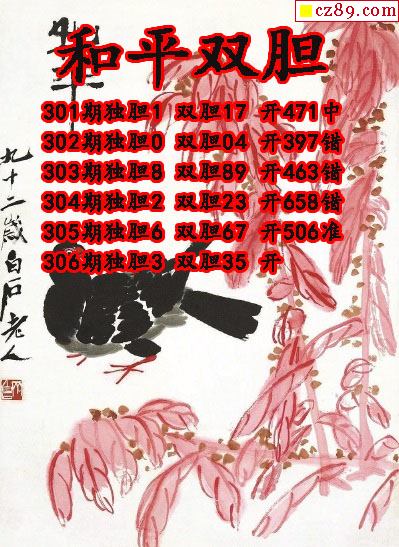 cz89.com
和平双胆
301期独胆1 双胆17 开471中
302期独胆0 双胆04 开397错
303期独胆8 双胆89 开463错
304期独胆2 双胆23 开658错
305期独胆6 双胆67 开506准
306期独胆3 双胆35 开
和平
九十二歲白石老人